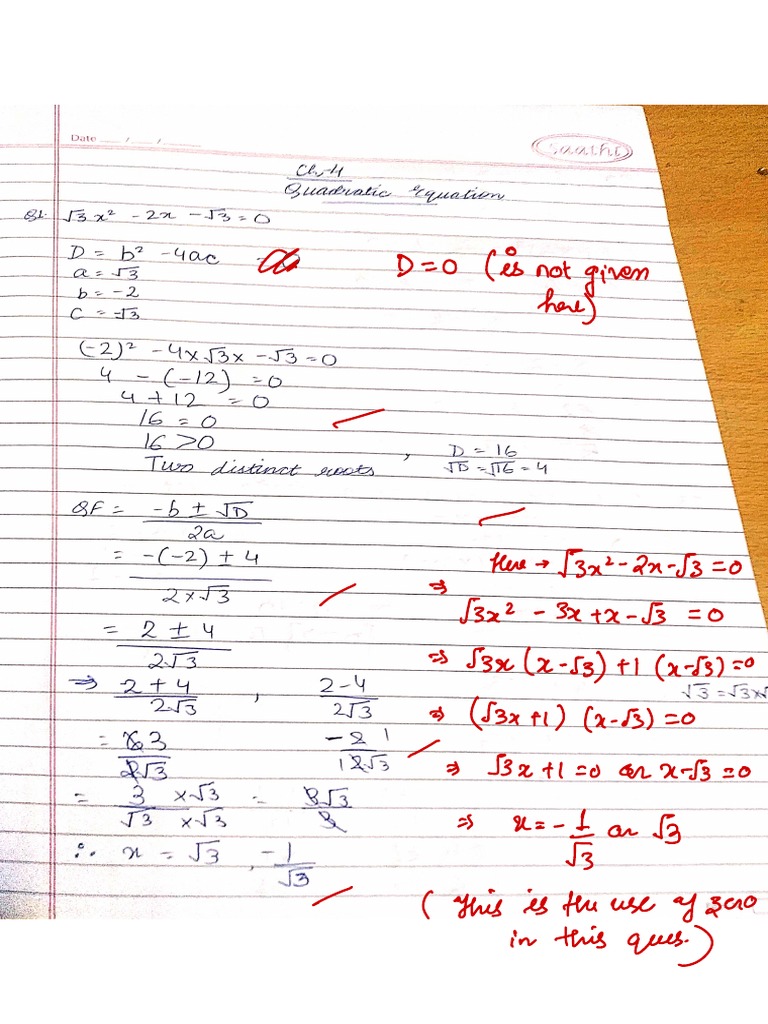 Date __/__/____
Saathi
Ch-4
Quadratic Equation
Q1. √3x² - 2x - √3 = 0
D = b² - 4ac
a = √3
b = -2
c = -√3
D = 0 (is not given
here)
(-2)² - 4x√3x - √3 = 0
4 - (-12) = 0
4 + 12 = 0
16 = 0
16 > 0
Two distinct roots , D = 16
√D = √16 = 4
QF = -b ± √D / 2a
= -(-2) ± 4 / 2x√3
= 2 ± 4 / 2√3
⇒ 2 + 4 / 2√3 , 2 - 4 / 2√3
= 6 3 / 2√3 - 2 1 / 1 2√3
= 3 x√3 / √3 x√3 = 3√3 / 3
∴ x = √3 , -1 / √3
Here → √3x² - 2x - √3 = 0
⇒ √3x² - 3x + x - √3 = 0
⇒ √3x (x - √3) + 1 (x - √3) = 0
√3 = √3x√
⇒ (√3x + 1) (x - √3) = 0
⇒ √3x + 1 = 0 or x - √3 = 0
⇒ x = - 1 / √3 or √3
(This is the use of zero
in this ques.)